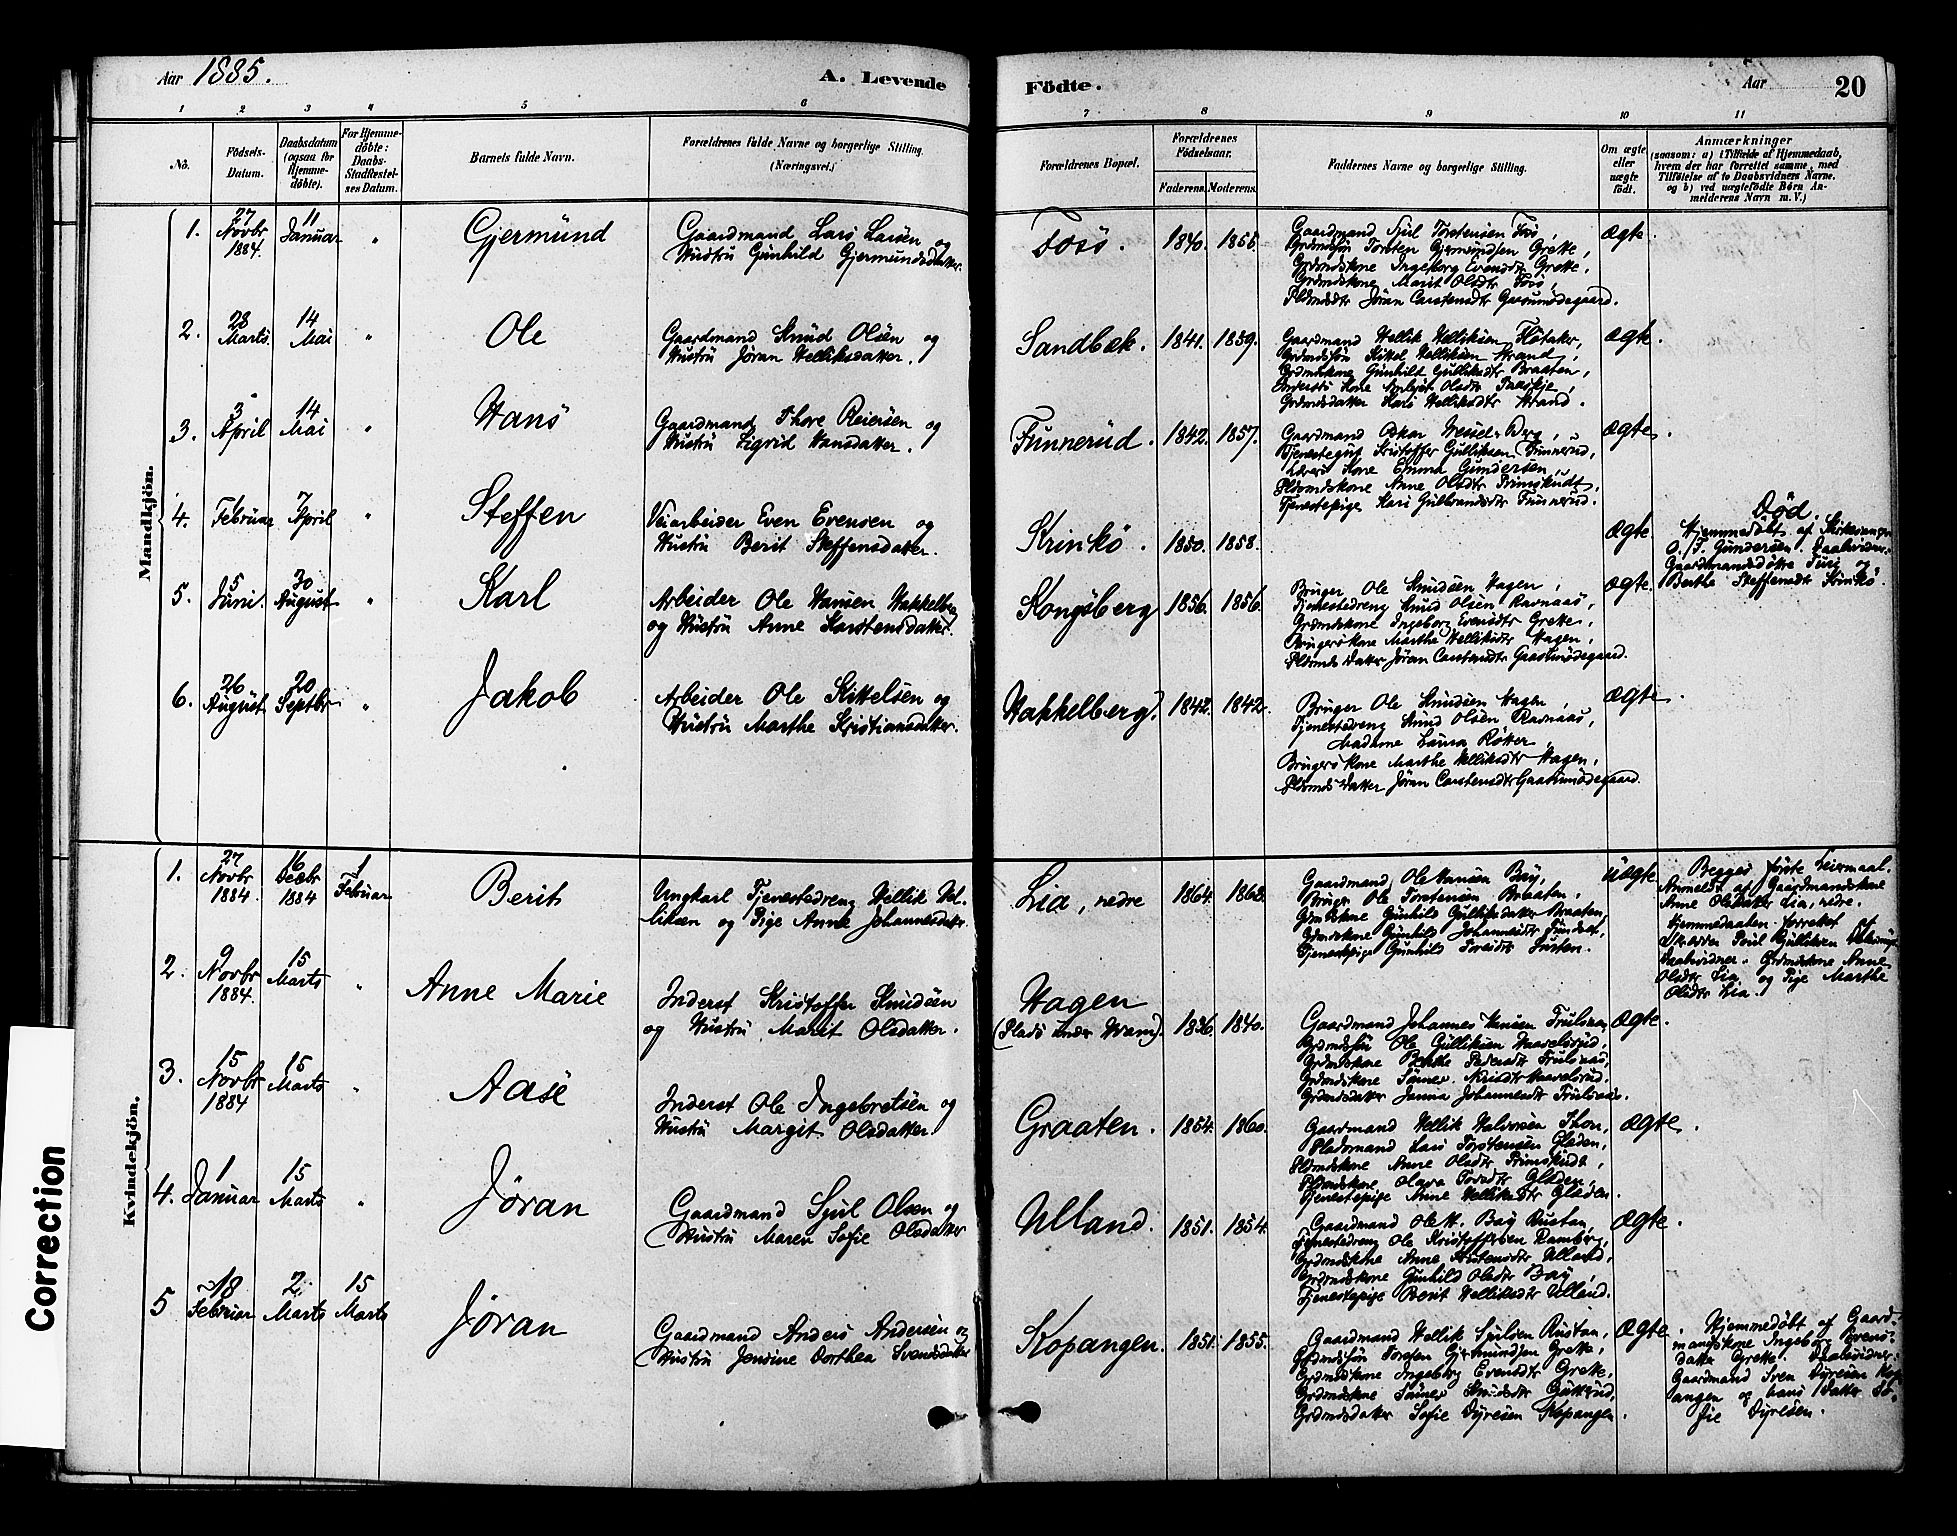 Aar 1885.
A. Levende
Födte.
Aar
20
1 2 3 4 5 6 7 8 9 10 11
No.
Födsels-
Datum.
Daabsdatum
(ogsaa for
Hjemme-
döbte).
For Hjemme-
döbte:
Daabs-
Stadfæstel-
ses Datum.
Barnets fulde Navn.
Forældrenes fulde Navne og borgerlige Stilling.
(Næringsvei.)
Forældrenes Bopæl.
Forældrenes
Födselsaar.
Faderens. Moderens.
Faddernes Navne og borgerlige Stilling.
Om ægte
eller
uægte
födt.
Anmærkninger
(saasom: a) i Tilfælde af Hjemmedaab,
hvem der har forrettet samme, med
Tilföielse af to Daabsvidners Navne.
og b) ved uægtefödte Börn An-
melderens Navn m. V.)
Mandkjön.
1. 27 Novbr 1884. 11 Januar " Gjermund
Gaardmand Lars Larsen og
Hustru Gunhild Gjermundsdatter.
Foss. 1840. 1855.
Gaardmand Sjul Torstensen Foss,
Grdmdsøn Torsten Gjermundsen Grette,
Grdmdskone Ingeborg Evensdtr Grette,
Grdmdskone Marit Olsdtr Foss,
Pldsmdsdtr Jøran Carstensdtr
ægte.
2. 28 Marts. 14 Mai " Ole
Gaardmand Knud Olsen og
Hustru Jøran Helliksdatter.
Sandbæk. 1841. 1859.
Gaardmand Hellik Helliksen
Grdmdssøn Kittel Helliksen Strand,
Grdmdskone Gunhild Gulliksdtr Braaten,
Kone Olsdtr
Grdmdsdatter Kari Helliksdtr Strand.
ægte.
3. 3 April 14 Mai " Hans
Gaardmand Thore Reiersen og
Hustru Sigrid Hansdatter.
Funnerud. 1842. 1857.
Gaardmand Oskar Wessel Berg,
Tjenestegut Kristoffer Gulliksen Funnerud,
Lærers Kone Emma Gundersen,
Pldsmdskone Anne Olsdtr Primskudt,
Tjenestepige Kari Gulbrandsdtr Funnerud.
ægte.
4. Februar 7 April " Steffen
Veiarbeider Even Evensen og
Hustru Berit Steffensdatter.
Krinkö. 1850. 1858.
ægte.
Død.
Hjemmedøbt af Kirkesanger
O. T. Gundersen. Daabvidner:
Gaardmandsdøtre Turi og
Berthe Steffensdtr Krinkö.
5. 5 Juni. 30 August " Karl
Arbeider Ole Hansen Hakkelberg
og Hustru Anne Karstensdatter.
Kongsberg 1856. 1856.
Bruger Ole Knudsen Hagen,
Tjenestedreng Knud Olsen Ravnaas,
Grdmdskone Ingeborg Evensdtr Grette,
Brugerskone Marthe Helliksdtr Hagen,
Pldsmds datter Jøran Carstensdtr
ægte.
6. 26 August 20 Septbr " Jakob
Arbeider Ole Kittelsen og
Hustru Marthe Kristiansdatter.
Hakkelberg. 1842. 1842.
Bruger Ole Knudsen Hagen,
Tjenestedreng Knud Olsen Ravnaas,
Madame Laura Røtter,
Brugerskone Marthe Helliksdtr Hagen,
Pldsmds datter Jøran Carstensdtr
ægte.
Kvindekjön.
1. 27 Novbr 1884. 16 Decbr 1884 1 Februar Berit
Ungkarl Tjenestedreng Hellik Hel-
liksen og Pige Anne Johannesdatter.
Lia, nedre 1864. 1863.
Gaardmand Ole Hansen Bay,
Bruger Ole Torstensen Braaten,
Grdmdskone Gunhild Gulliksdatter Braaten,
Grdmdskone Gunhild Johannesdtr
Tjenestepige Gunhild
uægte.
Begges første Leiermaal.
Anmeldt af Gaardmandskone
Anne Olsdatter Lia, nedre.
Hjemmedaaben forrettet af
Poul Gulliksen
Daabvidner: Grdmdskone Anne
Olsdtr Lia og Pige Marthe
Olsdtr Lia.
2. 9 Novbr 1884. 15 Marts " Anne Marie
Inderst Kristoffer Knudsen
og Hustru Marit Olsdatter.
Hagen
(Plads under Wam). 1836. 1840.
Gaardmand Johannes Hansen Trulsnæs,
Grdmdssøn Ole Gulliksen Haavelsrud,
Grdmdskone Berthe Pedersdtr Trulsnæs,
Grdmdskone Haavelsrud,
Grdmdsdatter Johannesdtr Trulsnæs.
ægte.
3. 15 Novbr 1884 15 Marts " Aase
Inderst Ole Ingebretsen og
Hustru Margit Olsdatter.
Graaten. 1854. 1860.
Gaardmand Hellik Halvorsen Thon,
Pladsmand Lars Torstensen Gladen,
Pldsmdskone Anne Olsdtr Primskudt,
Pldsmdskone Gladen,
Tjenestepige Anne Helliksdtr Gladen.
ægte.
4. 1 Januar 15 Marts " Jøran
Gaardmand Sjul Olsen og
Hustru Maren Sofie Olsdatter
Ulland. 1851. 1854.
Gaardmand Ole H. Bay Rustan,
Tjenestedreng Ole Kristoffersen Ramberg,
Grdmdskone Anne Ulland,
Grdmdskone Gunhild Olsdtr Bay,
Tjenestepige Berit Helliksdtr Ulland.
ægte.
5 18 Februar 2 Marts 15 Marts Jøran
Gaardmand Anders Andersen og
Hustru Jensine Dorthea Svendsdatter
Kopangen. 1851. 1855.
Gaardmand Hellik Sjulsen Rustan,
Grdmdssøn Torsten Gjermundsen Grette,
Grdmdskone Ingeborg Evensdtr Grette,
Grdmdskone Knudsdtr
Grdmdsdatter Sofie Dyresen Kopangen.
ægte.
Hjemmedøbt af Gaard-
mandskone Ingeborg Evens-
datter Grette. Daabvidner:
Gaardmand Sven Dyresen Kop-
angen og hans Datter So-
fie Dyresen.
Correction